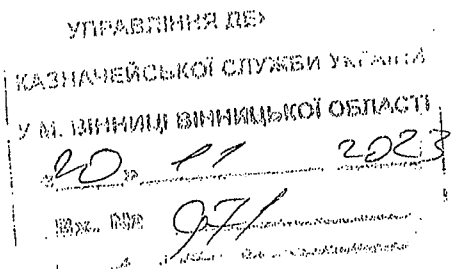 УПРАВЛІННЯ ДЕР
КАЗНАЧЕЙСЬКОЇ СЛУЖБИ УКРАЇНИ
У М. ВІННИЦІ ВІННИЦЬКОЇ ОБЛАСТІ
«20» 11 2023
Вх. № 971